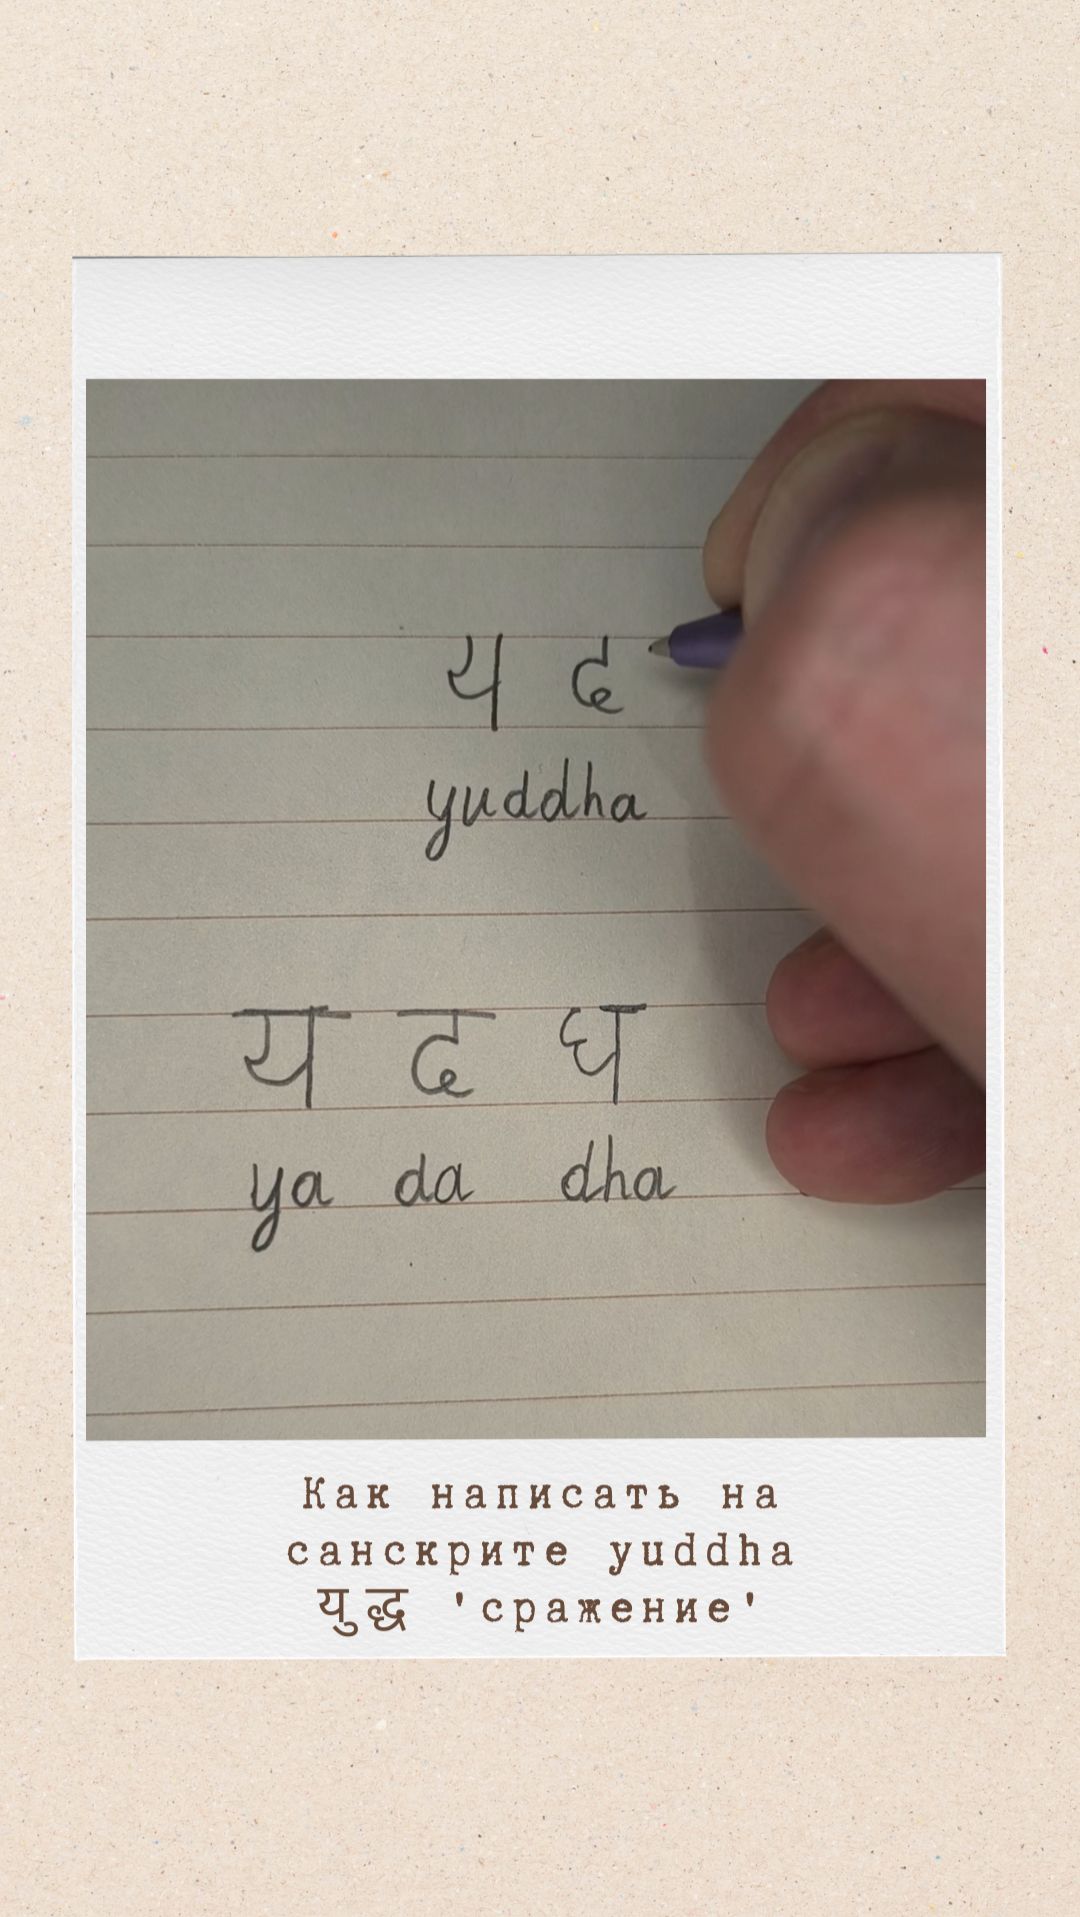 य द
yuddha
य द ध
ya da dha
Как написать на
санскрите yuddha
युद्ध 'сражение'